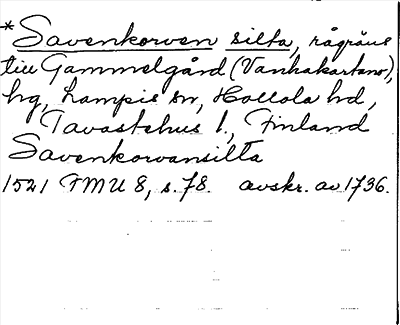 *Savenkorven silta, rågräns
till Gammelgård (Vanhakartano),
hg, Lampis sn, Hollola hd,
Tavastehus l., Finland
Savenkorvansilta
1521 FMU 8, s. 78. avskr. av 1736.